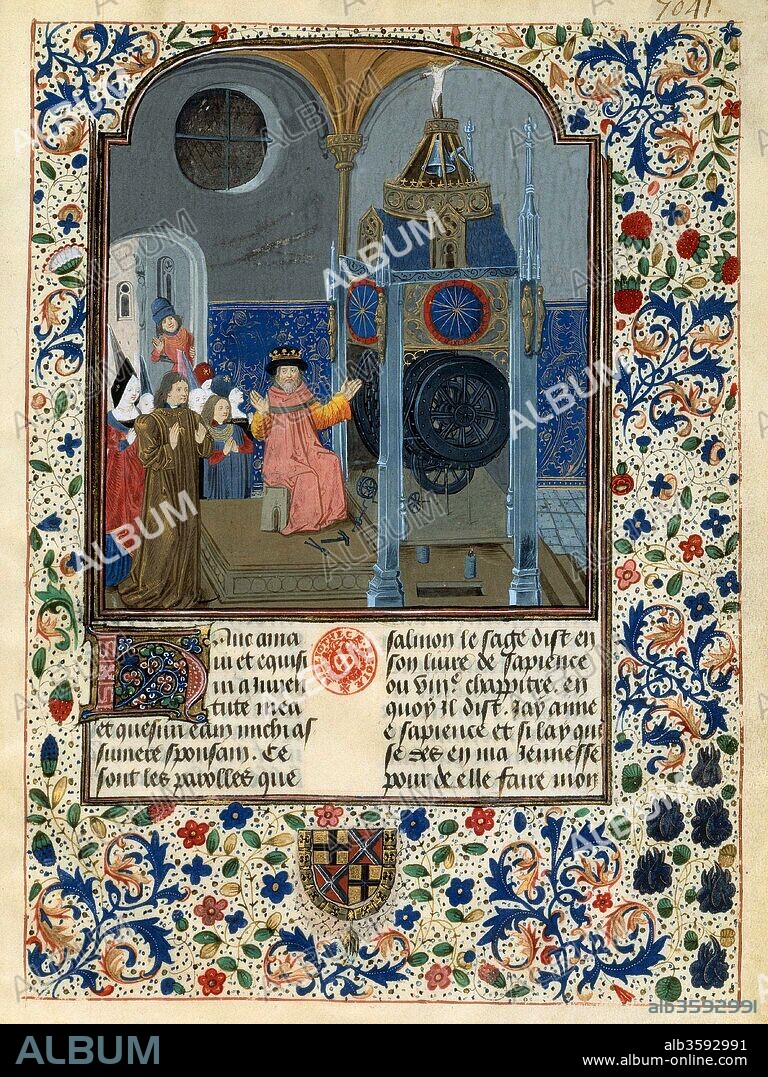 7041.
Hanc ama
ui et equisi
ui a Iuuen
tute mea
et quesiui eam michi as
sumere sponsam. Ce
sont les parolles que
salmon le saige dist en
son liure de sapience
ou viiie. chappitre. en
quoy il dist. Jay ame
e sapience et si lay que
se des en ma Jeunesse
pour de elle faire mon
alb3592991
ALBUM
alb3592991
www.album-online.com